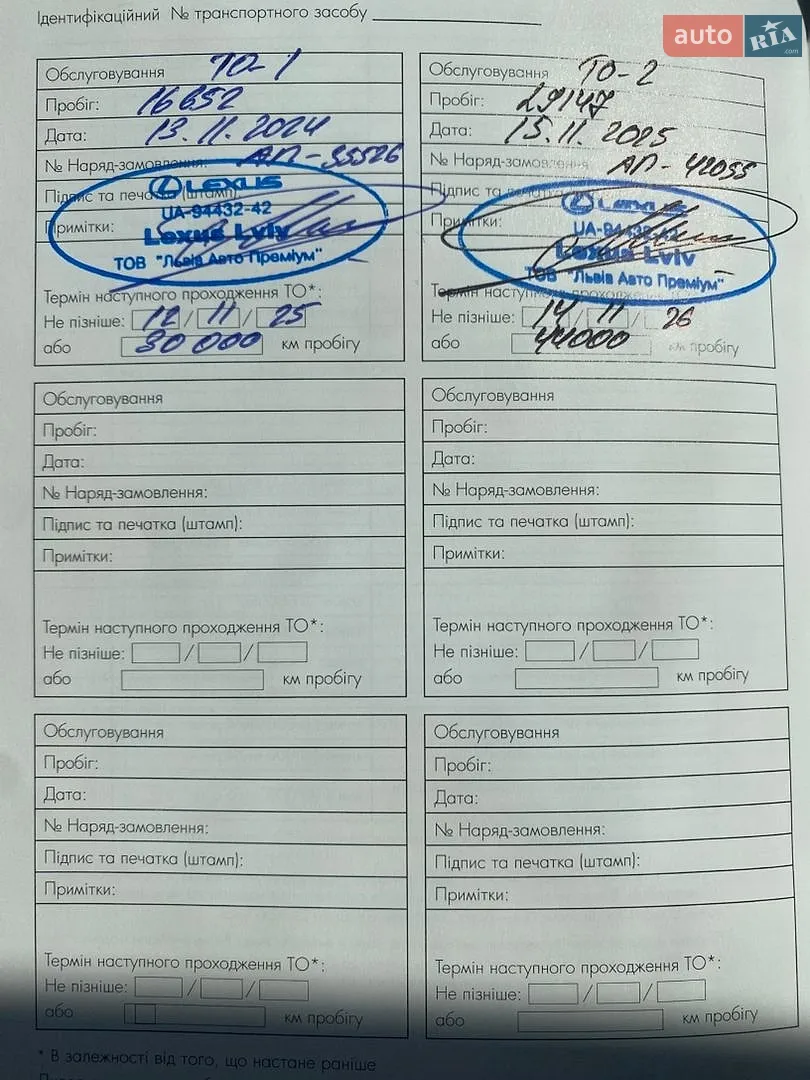 Ідентифікаційний № транспортного засобу
auto RIA .com
Обслуговування ТО-1
Пробіг: 16652
Дата: 13.11.2024
№ Наряд-замовлення: АП-35526
Підпис та печатка (штамп):
LEXUS
UA-94432-42
Примітки:
Lexus Lviv
ТОВ "Львів Авто Преміум"
Термін наступного проходження ТО*:
Не пізніше: 12 / 11 / 25
або 30 000 км пробігу
Обслуговування ТО-2
Пробіг: 29147
Дата: 15.11.2025
№ Наряд-замовлення: АП-42055
Підпис та печатка
LEXUS
Примітки:
UA-94432-42
Lexus Lviv
ТОВ "Львів Авто Преміум"
Термін наступного проходження ТО*:
Не пізніше: 14 / 11 / 26
або 44000 км пробігу
Обслуговування
Пробіг:
Дата:
№ Наряд-замовлення:
Підпис та печатка (штамп):
Примітки:
Термін наступного проходження ТО*:
Не пізніше: / /
або км пробігу
Обслуговування
Пробіг:
Дата:
№ Наряд-замовлення:
Підпис та печатка (штамп):
Примітки:
Термін наступного проходження ТО*:
Не пізніше: / /
або км пробігу
Обслуговування
Пробіг:
Дата:
№ Наряд-замовлення:
Підпис та печатка (штамп):
Примітки:
Термін наступного проходження ТО*:
Не пізніше: / /
або км пробігу
Обслуговування
Пробіг:
Дата:
№ Наряд-замовлення:
Підпис та печатка (штамп):
Примітки:
Термін наступного проходження ТО*:
Не пізніше: / /
або км пробігу
* В залежності від того, що настане раніше